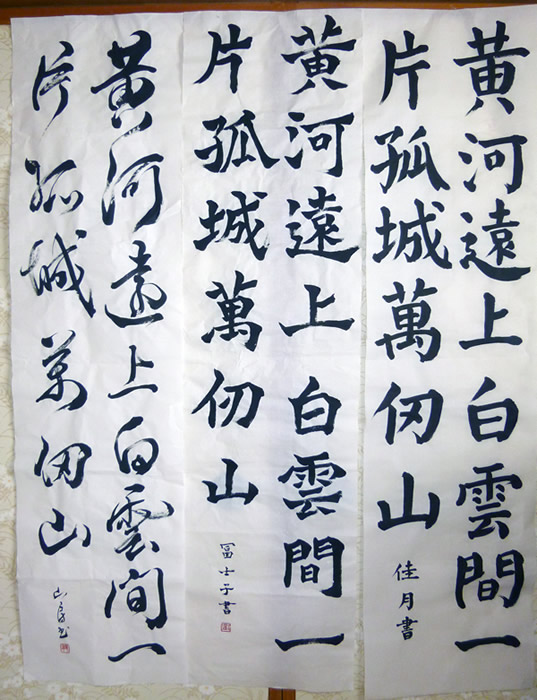 黄河遠上白雲間一
片孤城萬仞山
佳月書
黄河遠上白雲間一
片孤城萬仞山
冨士子書
黄河遠上白雲間一
片孤城万仞山